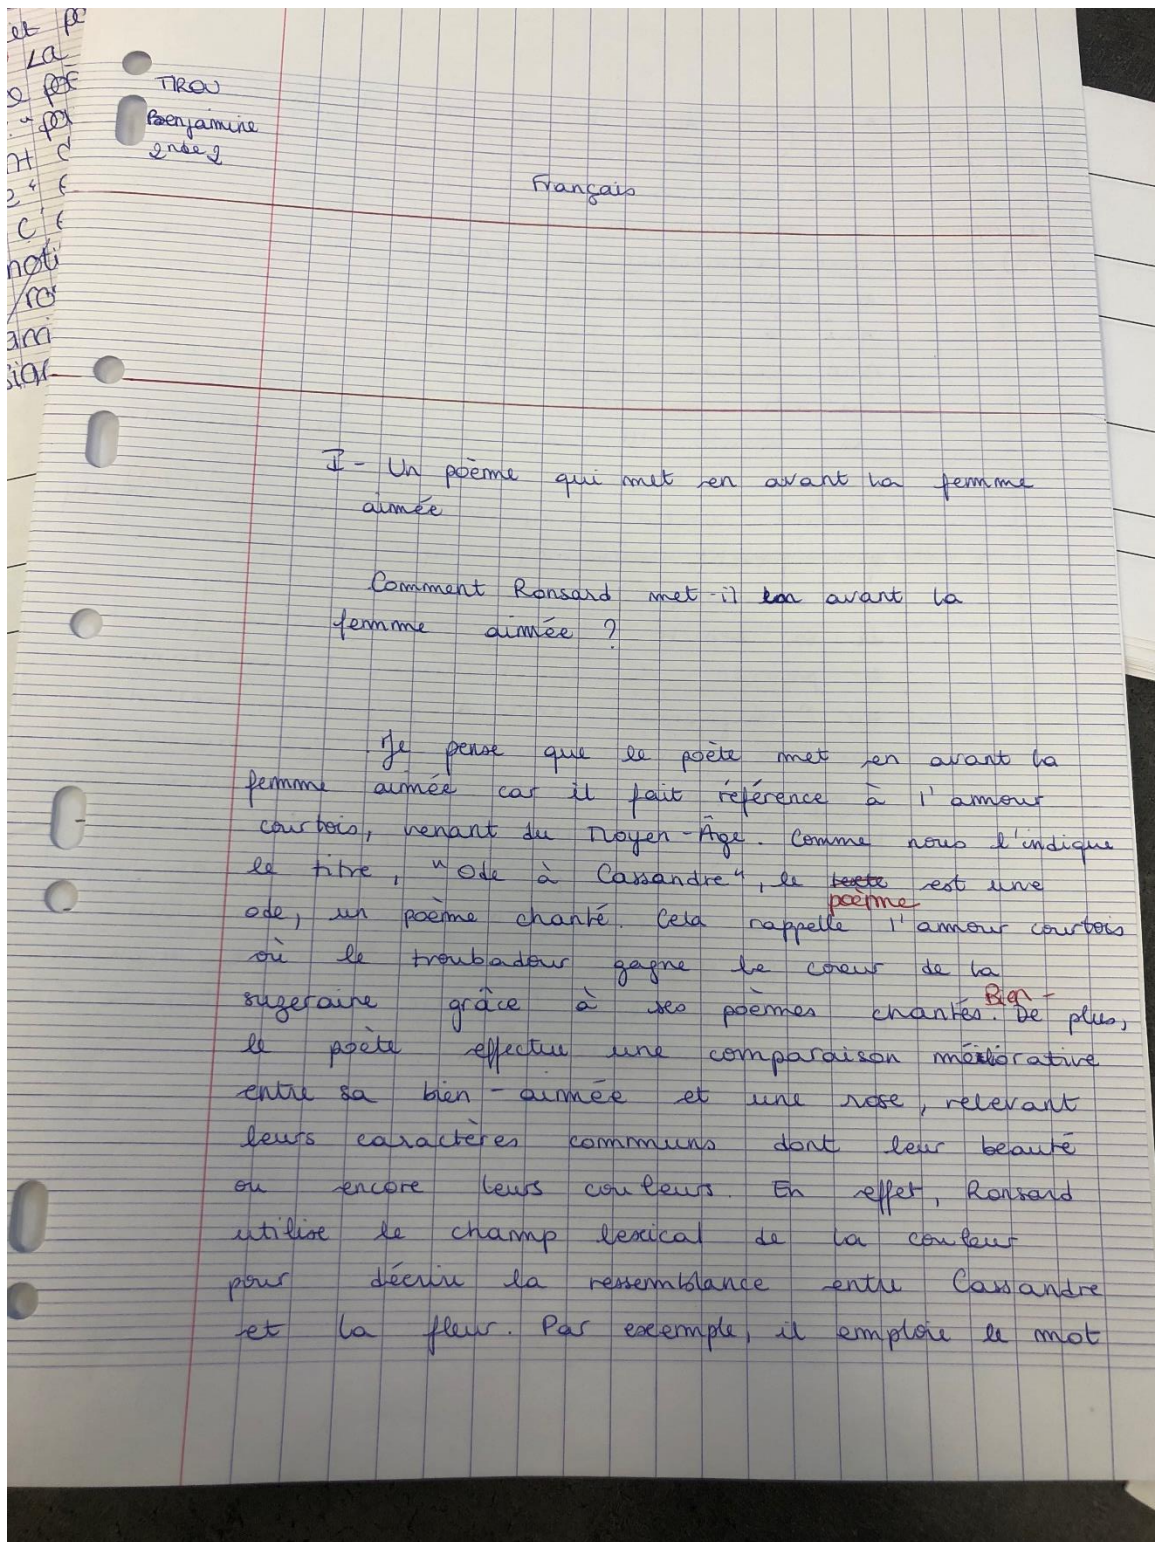 et pe
La
e poè
"per
nt c
e" e
c'e
noti
/ror
ami
siar
TIROU
Benjamine
2nde 2
Français
I - Un poème qui met en avant la femme
aimée
Comment Ronsard met-il en avant la
femme aimée ?
Je pense que le poète met en avant la
femme aimée car il fait référence à l'amour
courtois, venant du Moyen-Âge. Comme nous l'indique
le titre, "Ode à Cassandre", le texte est une
poème
ode, un poème chanté. Cela rappelle l'amour courtois
où le troubadour gagne le coeur de la
suzeraine grâce à ses poèmes chantés. De plus,
Bien -
le poète effectue une comparaison méliorative
entre sa bien-aimée et une rose, relevant
leurs caractères communs dont leur beauté
ou encore leurs couleurs. En effet, Ronsard
utilise le champ lexical de la couleur
pour décrire la ressemblance entre Cassandre
et la fleur. Par exemple, il emploie le mot